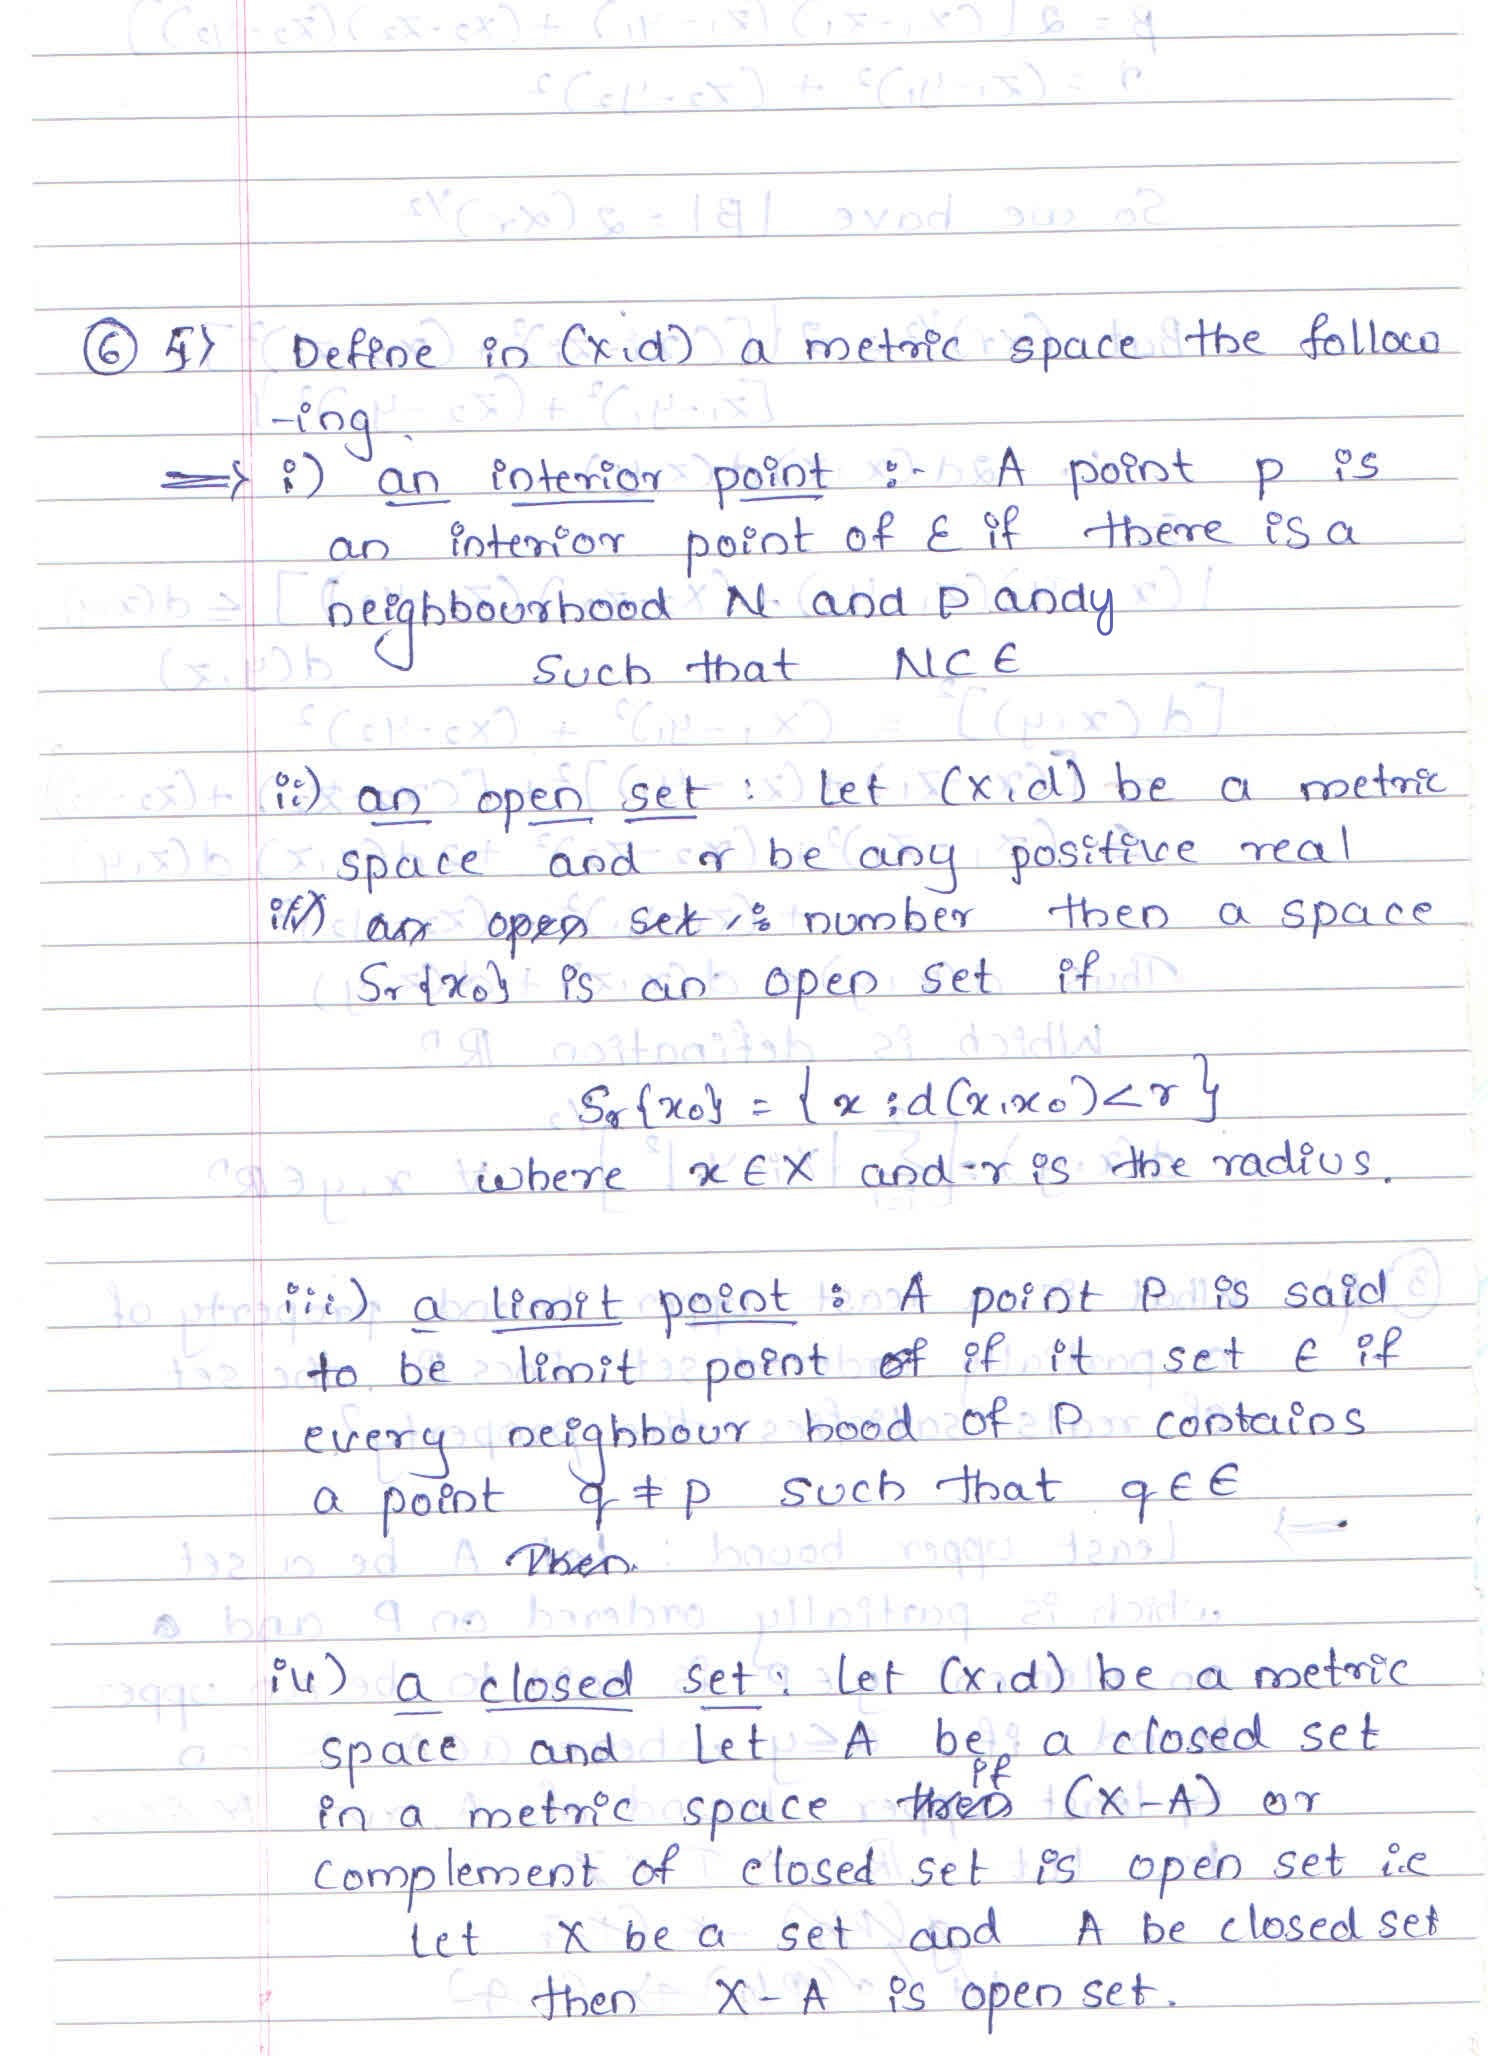 ⑥ 5> Define in (X,d) a metric space the follow
-ing.
⇒ i) an interior point :- A point p is
an interior point of E if there is a
neighbourhood N. and p andy
such that N⊂E
ii) an open set : Let (X,d) be a metric
space and r be any positive real
iii) an open set : number then a space
Sr{x0} is an open set if
Sr{x0} = { x : d(x,x0) < r }
where x∈X and r is the radius.
iii) a limit point : A point P is said
to be limit point of if it set E if
every neighbour hood of P contains
a point q ≠ p such that q∈E
Then.
iv) a closed set : Let (X,d) be a metric
space and Let A be a closed set
in a metric space then if (X-A) or
complement of closed set is open set i.e
Let X be a set and A be closed set
then X-A is open set.